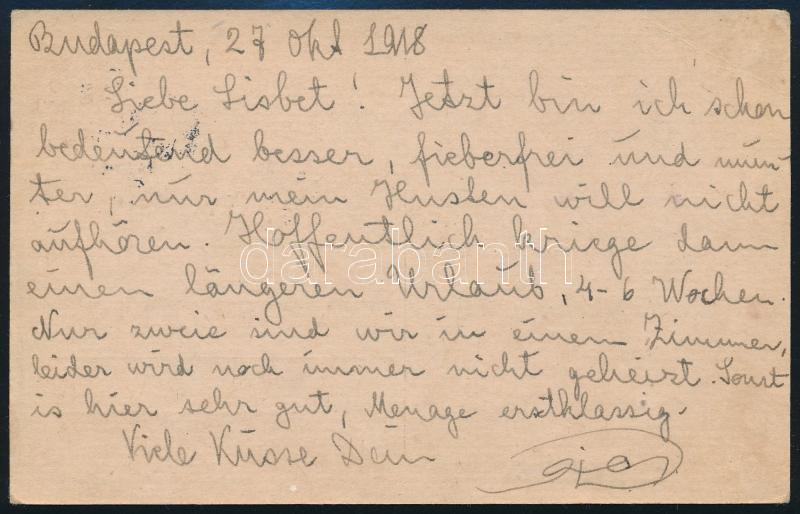 Budapest, 27 Okt 1918
Liebe Lisbet! Jetzt bin ich schon
bedeutend besser, fieberfrei und mun-
ter, nur mein Husten will nicht
aufhören. Hoffentlich kriege dann
einen längeren Urlaub, 4-6 Wochen.
Nur zweie sind wir in einem Zimmer,
leider wird noch immer nicht geheizt. Sonst
is hier sehr gut, Menage erstklassig.
Viele Küsse Dein
darabanth